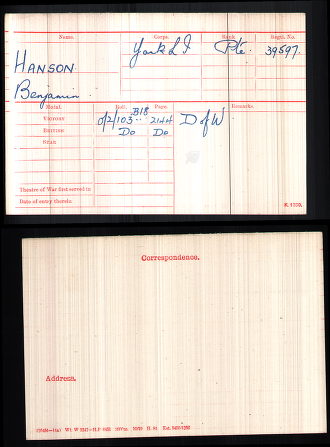 Name. Corps. Rank. Regtl. No.
HANSON York L I Pte. 39597.
Benjamin
Medal. Roll. Page. Remarks.
VICTORY O/2/103 B18 2144 D of W
BRITISH Do Do
STAR
Theatre of War first served in
Date of entry therein
K. 1380.
Correspondence.
Address.